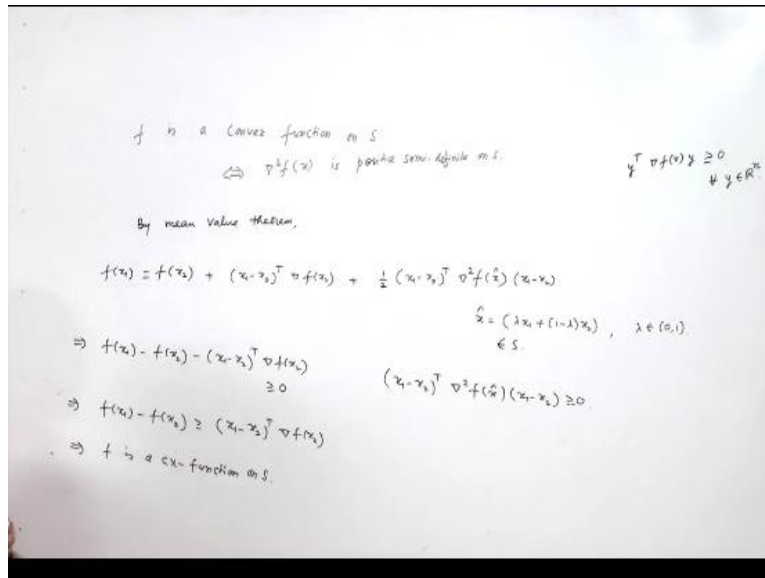 f is a convex function on S
⇔ ∇²f(x) is positive semi-definite on S.
yᵀ ∇f(x) y ≥ 0
∀ y ∈ ℝⁿ.
By mean value theorem,
f(x₁) = f(x₂) + (x₁-x₂)ᵀ ∇f(x₂) + ½ (x₁-x₂)ᵀ ∇²f(x̂) (x₁-x₂)
x̂ = (λx₁ + (1-λ)x₂), λ ∈ (0,1).
∈ S.
⇒ f(x₁) - f(x₂) - (x₁-x₂)ᵀ ∇f(x₂)
≥ 0
(x₁-x₂)ᵀ ∇²f(x̂) (x₁-x₂) ≥ 0
⇒ f(x₁) - f(x₂) ≥ (x₁-x₂)ᵀ ∇f(x₂)
⇒ f is a cx-function on S.